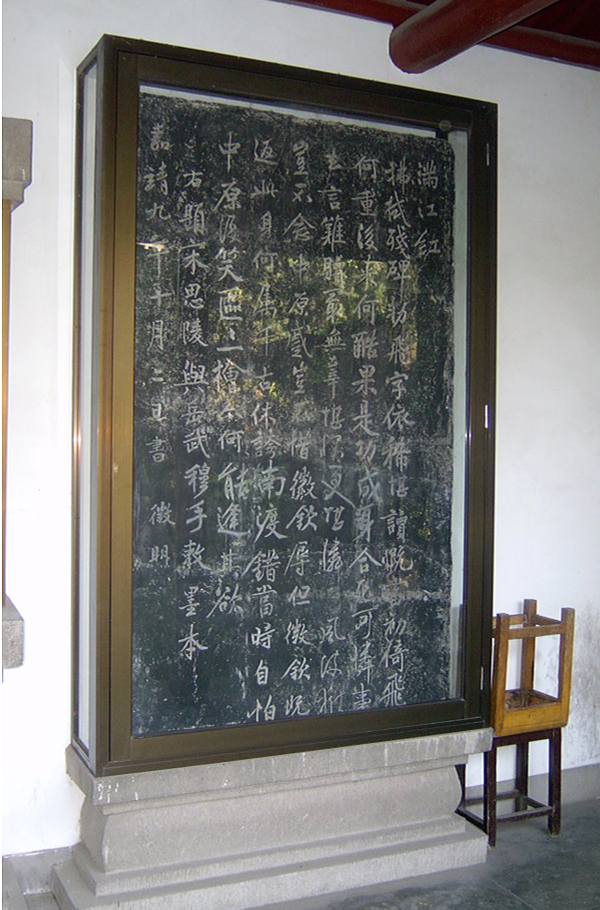 滿江紅
拂拭殘碑勑飛字依稀堪讀慨當初倚飛
何重後來何酷果是功成身合死可憐事
去言難贖最無辜堪恨更堪憐風波獄
豈不念中原蹙豈不惜徽欽辱但徽欽既
返此身何屬千古休誇南渡錯當時自怕
中原復笑區〻一檜亦何能逢其欲
右題宋思陵與岳武穆手敕墨本
嘉靖九年十月二日書 徵明